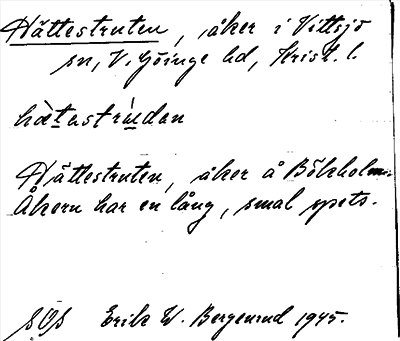 Hättestruten, åker i Vittsjö
sn, V. Göinge hd, Krist. l.
hätastrúdan
Hättestruten, åker å Bökholm.
Åkern har en lång, smal spets.
SOS Erik W. Bergenrud 1945.